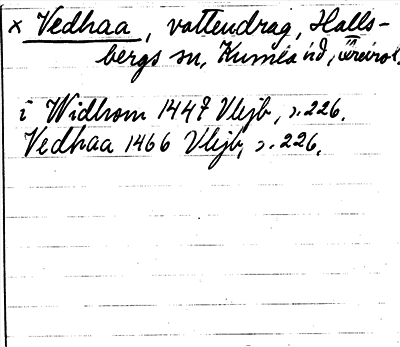 × Vedhaa, vattendrag, Halls-
bergs sn, Kumla hd,
i Widhom 1447 Vlejb, s. 226.
Vedhaa 1466 Vlejb, s. 226.